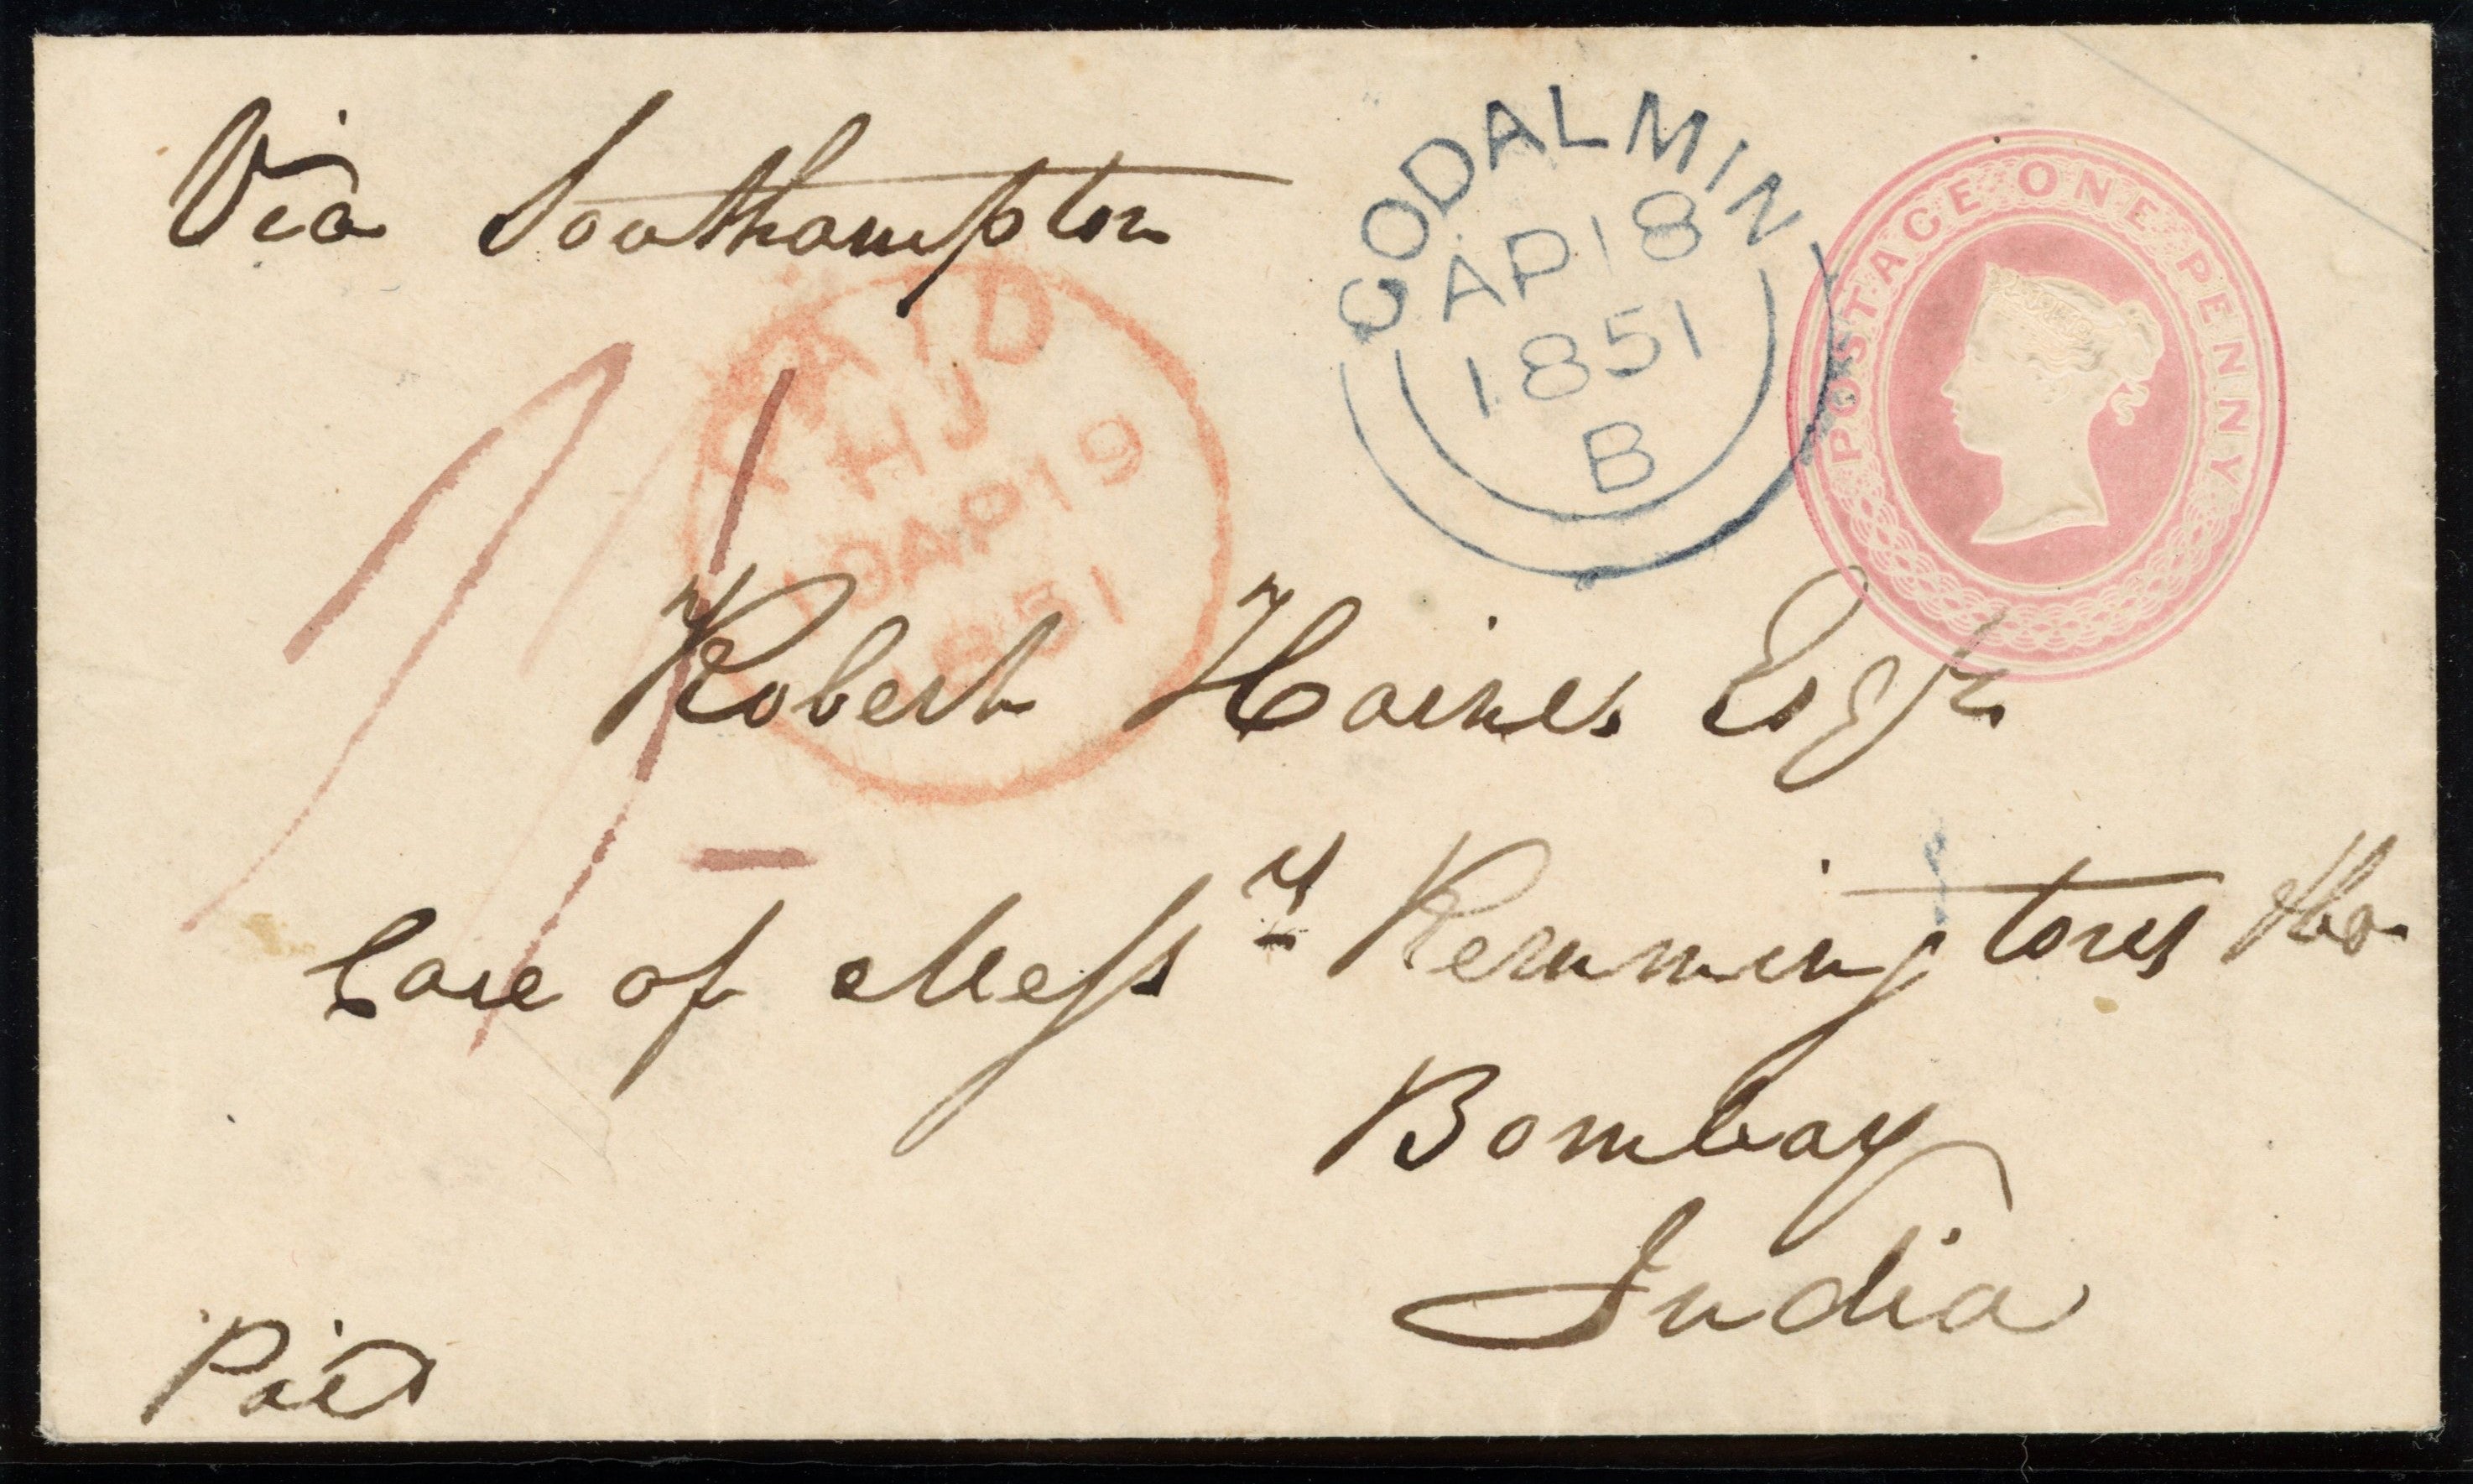 Via Southampton
GODALMIN
AP 18
1851
B
POSTAGE ONE PENNY
PAID
HJ
19 AP 19
1851
1/-
Robert Haines Esqr
Care of Messrs Remmingtons & Co
Bombay
India
Paid